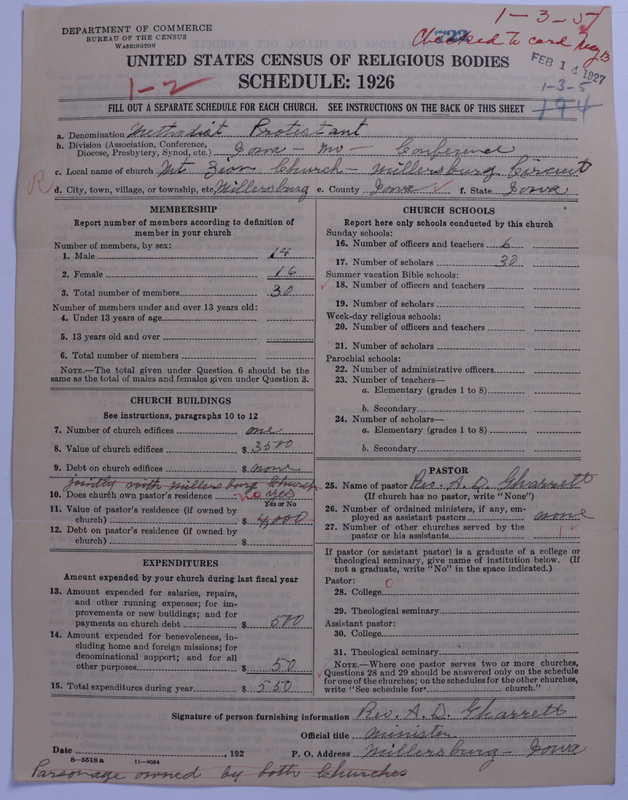 1-3-5
Checked to card
DEPARTMENT OF COMMERCE
BUREAU OF THE CENSUS
WASHINGTON
FEB 1 1927
UNITED STATES CENSUS OF RELIGIOUS BODIES
1-3-5
1-2
SCHEDULE: 1926
194
FILL OUT A SEPARATE SCHEDULE FOR EACH CHURCH. SEE INSTRUCTIONS ON THE BACK OF THIS SHEET
a. Denomination Methodist Protestant
b. Division (Association, Conference, Diocese, Presbytery, Synod, etc.) Iowa - Mo - Conference
c. Local name of church Mt Zion Church - Millersburg Circuit
R d. City, town, village, or township, etc. Millersburg e. County Iowa f. State Iowa
MEMBERSHIP
Report number of members according to definition of
member in your church
Number of members, by sex:
1. Male 14
2. Female 16
3. Total number of members 30
Number of members under and over 13 years old:
4. Under 13 years of age
5. 13 years old and over
6. Total number of members
NOTE.—The total given under Question 6 should be
same as the total of males and females given under Question 3.
CHURCH BUILDINGS
See instructions, paragraphs 10 to 12
7. Number of church edifices one
8. Value of church edifices $ 3500
9. Debt on church edifices $ none
jointly with Millersburg Church
10. Does church own pastor's residence no yes
Yes or No
11. Value of pastor's residence (if owned by
church) $ 4,000
12. Debt on pastor's residence (if owned by
church) $
EXPENDITURES
Amount expended by your church during last fiscal year
13. Amount expended for salaries, repairs,
and other running expenses; for im-
provements or new buildings; and for
payments on church debt $ 500
14. Amount expended for benevolences, in-
cluding home and foreign missions; for
denominational support; and for all
other purposes $ 50
15. Total expenditures during year $ 550
CHURCH SCHOOLS
Report here only schools conducted by this church
Sunday schools:
16. Number of officers and teachers 6
17. Number of scholars 30
Summer vacation Bible schools:
18. Number of officers and teachers
19. Number of scholars
Week-day religious schools:
20. Number of officers and teachers
21. Number of scholars
Parochial schools:
22. Number of administrative officers
23. Number of teachers—
a. Elementary (grades 1 to 8)
b. Secondary
24. Number of scholars—
a. Elementary (grades 1 to 8)
b. Secondary
PASTOR
25. Name of pastor Rev. A. D. Gharrett
(If church has no pastor, write "None")
26. Number of ordained ministers, if any, em-
ployed as assistant pastors none
27. Number of other churches served by the
pastor or his assistants 1
If pastor (or assistant pastor) is a graduate of a college or
theological seminary, give name of institution below. (If
not a graduate, write "No" in the space indicated.)
Pastor:
28. College 0
29. Theological seminary
Assistant pastor:
30. College
31. Theological seminary
NOTE.—Where one pastor serves two or more churches,
Questions 28 and 29 should be answered only on the schedule
for one of the churches; on the schedules for the other churches,
write "See schedule for church."
Signature of person furnishing information Rev. A. D. Gharrett
Official title Minister
Date , 192 P. O. Address Millersburg - Iowa
8-5518a 11-9064
Parsonage owned by both Churches